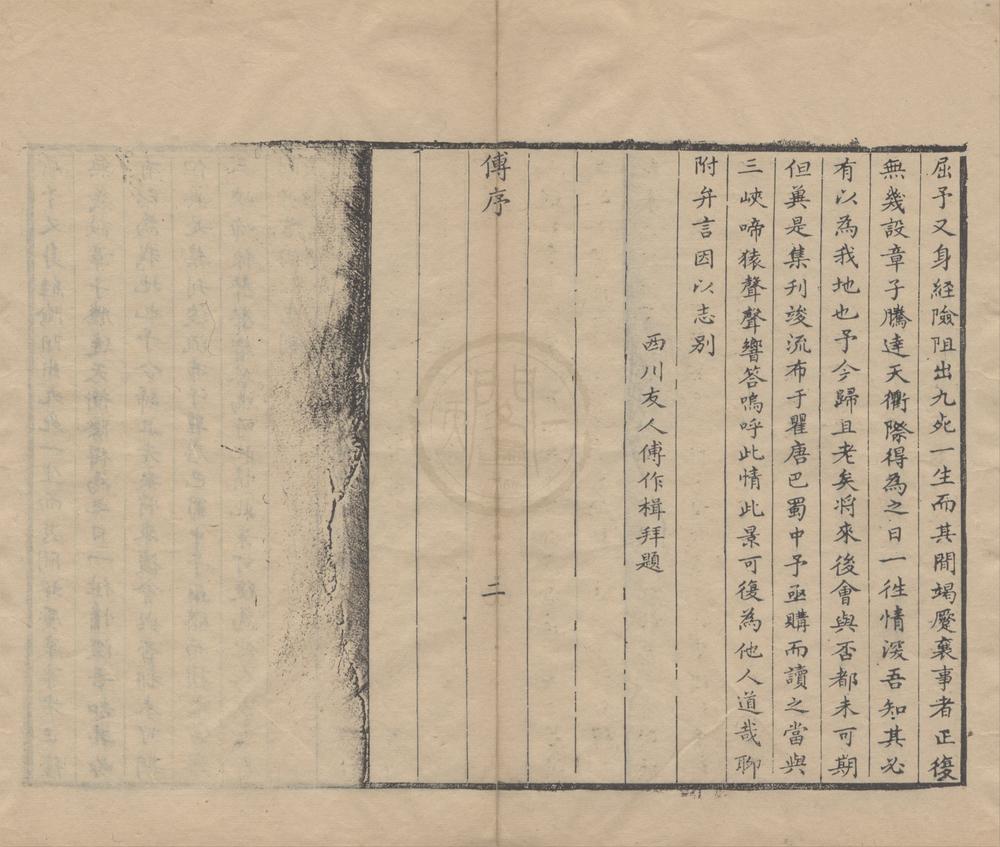 屈予又身經險阻出九死一生而其間竭蹷襄事者正復
無幾設章子騰達天衢際得為之日一徃情深吾知其必
有以為我地也予今歸且老矣將來後會與否都未可期
但兾是集刊竣流布于瞿唐巴蜀中予亟購而讀之當與
三峽啼猿聲聲響答嗚呼此情此景可復為他人道哉聊
附弁言因以志別
西川友人傅作楫拜題
傅序
二